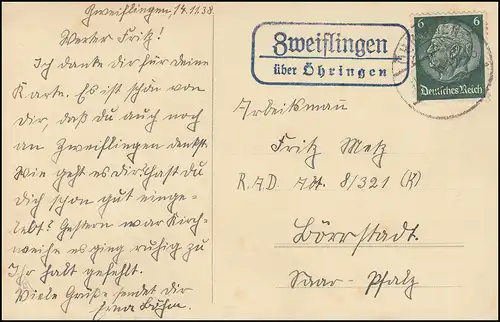 Zweiflingen, 14.11.38.
Werter Fritz!
Ich danke dir für deine
Karte. Es ist schön von
dir, daß du auch noch
an Zweiflingen denkst.
Wie geht es dir? Hast du
dich schon gut einge-
lebt? Gestern war Kirch-
weihe es ging ruhig zu
Ihr habt gefehlt.
Viele Grüße sendet dir
Erna Böhm.
Zweiflingen
über Öhringen
6 6
Deutsches Reich
Arbeitsmann
Fritz Metz
R.A.D. Abt. 8/321 (K)
Börrstadt.
Saar-Pfalz